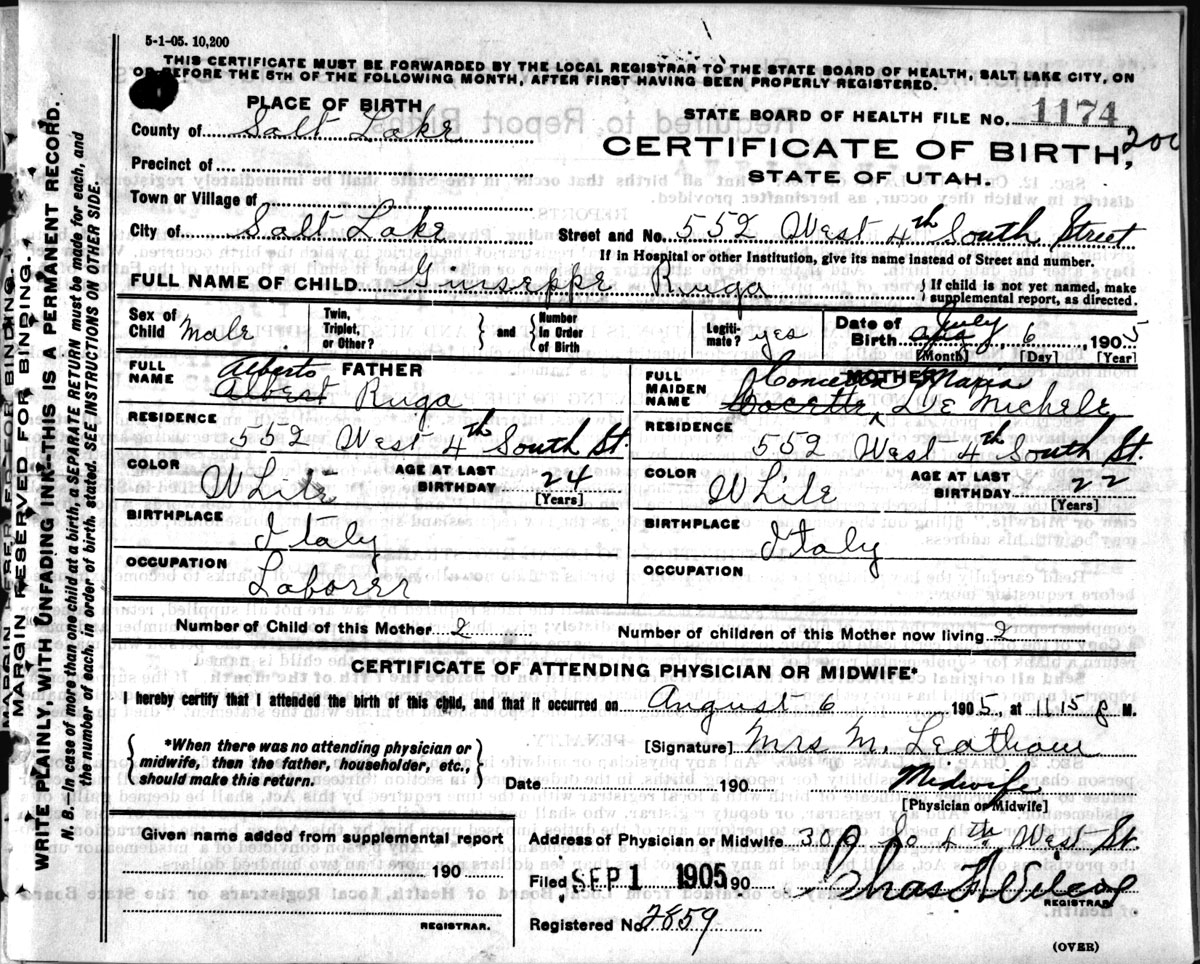 5-1-05. 10,200
THIS CERTIFICATE MUST BE FORWARDED BY THE LOCAL REGISTRAR TO THE STATE BOARD OF HEALTH, SALT LAKE CITY, ON
OR BEFORE THE 5TH OF THE FOLLOWING MONTH, AFTER FIRST HAVING BEEN PROPERLY REGISTERED.
PLACE OF BIRTH
STATE BOARD OF HEALTH FILE NO. 1174
200
County of Salt Lake
CERTIFICATE OF BIRTH,
Precinct of
STATE OF UTAH.
Town or Village of
City of Salt Lake
Street and No. 552 West 4th South Street
If in Hospital or other Institution, give its name instead of Street and number.
FULL NAME OF CHILD Giuseppe Ruga
} If child is not yet named, make
supplemental report, as directed.
Sex of Child Male
Twin, Triplet, or Other? } and { Number in Order of Birth
Legitimate? yes
Date of Birth July 6 1905
[Month] [Day] [Year]
FULL NAME FATHER
Alberto
Albert Ruga
FULL MAIDEN NAME MOTHER
Maria
De Michele
RESIDENCE
552 West 4th South St.
RESIDENCE
552 West 4th South St.
COLOR White
AGE AT LAST BIRTHDAY 24
[Years]
COLOR White
AGE AT LAST BIRTHDAY 22
[Years]
BIRTHPLACE
Italy
BIRTHPLACE
Italy
OCCUPATION
Laborer
OCCUPATION
Number of Child of this Mother 2
Number of children of this Mother now living 2
CERTIFICATE OF ATTENDING PHYSICIAN OR MIDWIFE*
I hereby certify that I attended the birth of this child, and that it occurred on August 6 1905, at 11.15 P M.
{ *When there was no attending physician or
midwife, then the father, householder, etc.,
should make this return. }
[Signature] Mrs M. Leatham
Date 190
Midwife
[Physician or Midwife]
Given name added from a supplemental report
190
REGISTRAR.
Address of Physician or Midwife 300 So 4th West St.
Filed SEP 1 1905 90
REGISTRAR
Registered No 2859
(OVER)
MARGIN RESERVED FOR BINDING.
MARGIN RESERVED FOR BINDING.
WRITE PLAINLY, WITH UNFADING INK—THIS IS A PERMANENT RECORD.
N. B.—In case of more than one child at a birth, a SEPARATE RETURN must be made for each, and
the number of each, in order of birth, stated. SEE INSTRUCTIONS ON OTHER SIDE.